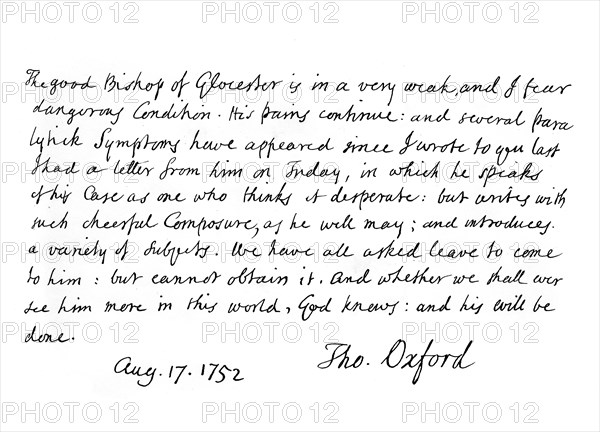 The good Bishop of Glocester is in a very weak, and I fear
dangerous Condition. His pains continue: and several para
lytick Symptoms have appeared since I wrote to you last
I had a letter from him on Friday, in which he speaks
of his Case as one who thinks it desperate: but writes with
such cheerful Composure, as he well may; and introduces
a variety of Subjects. We have all asked leave to come
to him: but cannot obtain it. And whether we shall ever
see him more in this world, God knows: and his will be
done.
Aug. 17. 1752 Tho. Oxford
PHOTO 12